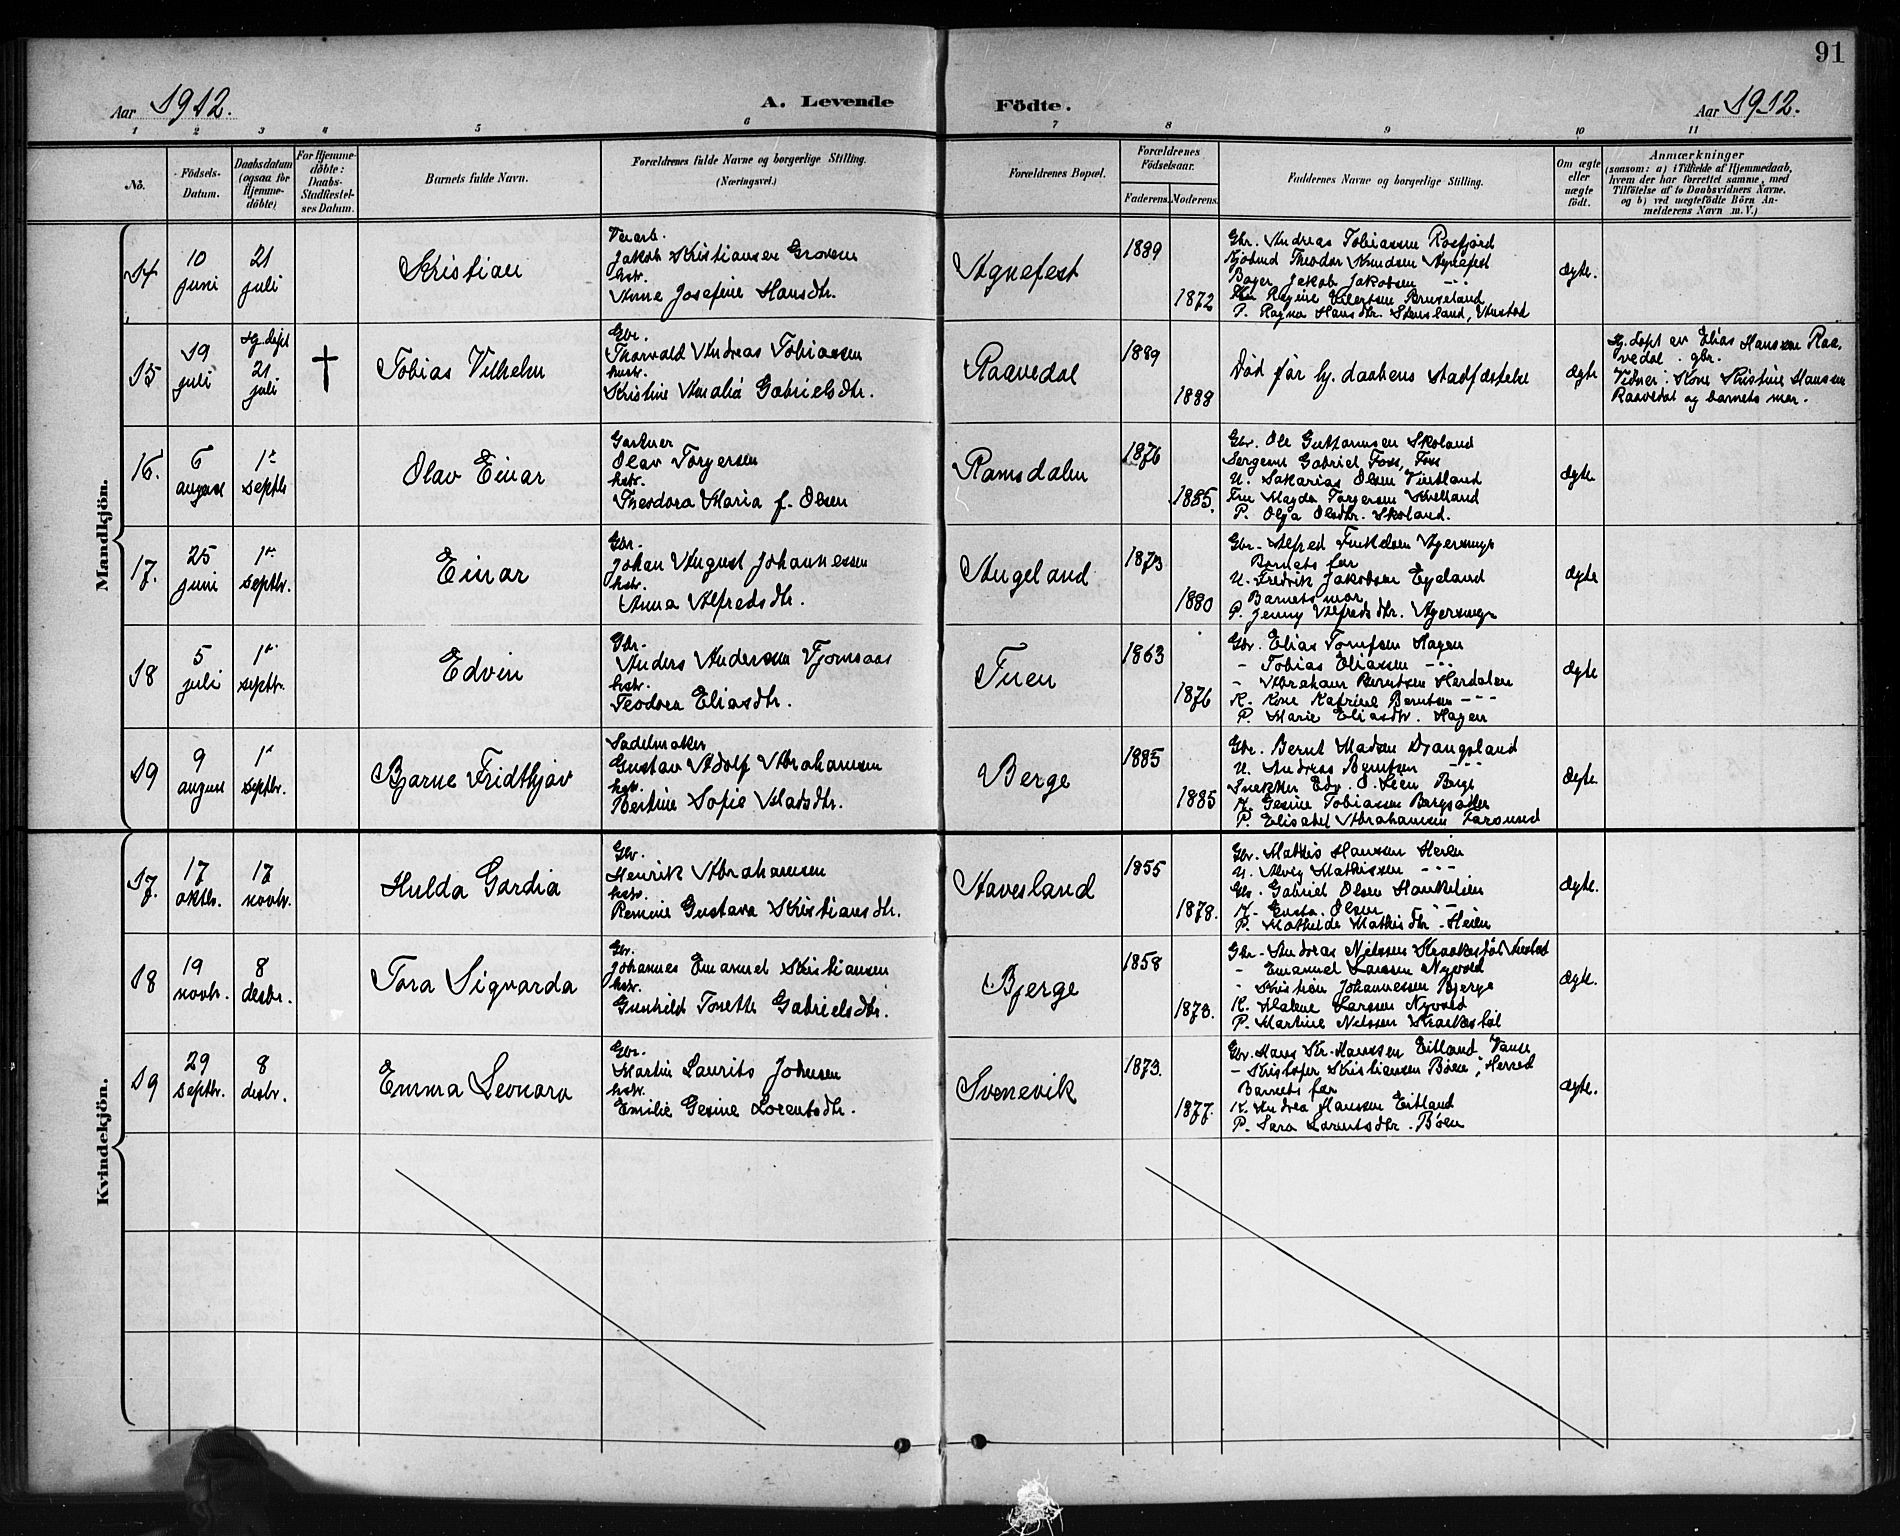 91
Aar 1912. A. Levende Födte. Aar 1912.
1 2 3 4 5 6 7 8 9 10 11
No.
Födsels-Datum.
Daabsdatum (ogsaa for Hjemme-döbte)
For Hjemme-döbte: Daabs-Stadfæstel-ses Datum.
Barnets fulde Navn.
Forældrenes fulde Navne og borgerlige Stilling.
(Næringsvei.)
Forældrenes Bopæl.
Forældrenes Födselsaar.
Faderens. Moderens.
Faddernes Navne og borgerlige Stilling.
Om ægte eller uægte födt.
Anmærkninger
(saasom: a) i Tilfælde af Hjemmedaab,
hvem der har forrettet samme, med
Tilföielse af to Daabsvidners Navne.
og b) ved uægtefödte Börn An-
melderens Navn m. V.)
Mandkjön.
14
10 juni
21 juli
Kristian
Jakob Kristiansen Groven
hstr.
Anne Josefine Hansdtr.
Agnefest
1889
1872
Gbr. Andreas Tobiassen Rosfjord
Theodor Knudsen Agnefest
Jakob Jakobsen -"-
P. Ragna Hansdtr. Stensland,
ægte.
15
19 juli
hj. døpt 21 juli
†
Tobias Vilhelm
Gbr.
Thorvald Andreas Tobiassen
hustr.
Kristine Amalia Gabrielsdtr.
Raavedal
1889
1888
Død før hj. daabens stadfæstelse
ægte
Hj. døpt av Elias Hanssen Raa-
vedal. gbr.
Vidner: Kone Kristine Hanssen
Raavedal og barnets mor.
16.
6 august
1ste septbr
Olav Einar
Gartner
Olav Torgersen
hstr.
Theodora Maria f. Olsen
Ramsdalen
1876
1885.
Gbr. Ole Guttormsen Skoland
Sergeant Gabriel Foss, Foss
U. Sakarias Olsen
Fru Magda Torgersen
P. Olga Olsdtr. Skoland.
ægte.
17.
25 juni
1ste septbr.
Einar
Gbr.
Johan August Johannessen
hstr.
Anna Alfredsdtr.
Augeland
1873
1880
Gbr. Alfred
Barnets far
U. Fredrik Jakobsen Egeland
Barnets mor
P. Jenny Alfredsdtr.
ægte
18
5 juli
1ste septbr.
Edvin
Gbr.
Anders Andersen Fjomsaas
hstr.
Teodora Eliasdtr.
Tuen
1863
1876
Gbr. Elias Hagen
- Tobias Eliassen -"-
- Abraham Berntsen Herdalen
K. Kone Katrine Berntsen -"-
P. Marie Eliasdtr. Hagen
ægte
19
9 august
1ste septbr.
Bjarne Fridthjov
Sadelmaker
Gustav Adolf Abrahamsen
hstr.
Bertine Sofie Madsdtr.
Berge
1885
1885
Gbr. Bernt Madsen Drangsland
U. Andreas Berntsen -"-
Snekker Edv. O. Lien Berge
K. Gesine Tobiassen
P. Elisabet Abrahamsen Farsund
Ægte.
Kvindekjön.
17.
17 oktbr.
17 novbr.
Hulda Gardia
Gbr.
Henrik Abrahamsen
hstr.
Gustava Kristiansdtr.
Havesland
1855
1878.
Gbr. Mathis Hanssen Heien
U. Mathissen -"-
Gbr. Gabriel Olsen
K. Olsen -"-
P. Mathilde Mathisdtr. Heien
ægte.
18
19 novbr.
8 desbr.
Tora Sigvarda
Gbr.
Johannes Emanuel Kristiansen
hstr.
Gunhild Tonette Gabrielsdtr.
Bjerge
1858
1873.
Gbr. Andreas Nilssen
- Emanuel Larssen Nyvold
- Kristian Johannessen Bjerge
K. Malene Larssen Nyvold
P. Martine Nilssen
ægte.
19
29 septbr.
8 desbr.
Emma Leonora
Gbr.
Martin Laurits Johnsen
hstr.
Emilie Gesine Lorentsdtr.
Svenevik
1873.
1877.
Gbr. Hans Kr. Hanssen Eitland, Vanse
- Kristofer Kristiansen Bøen, Herred
Barnets far
K. Andrea Hanssen Eitland
P. Sara Lorentsdtr. Bøen
ægte.